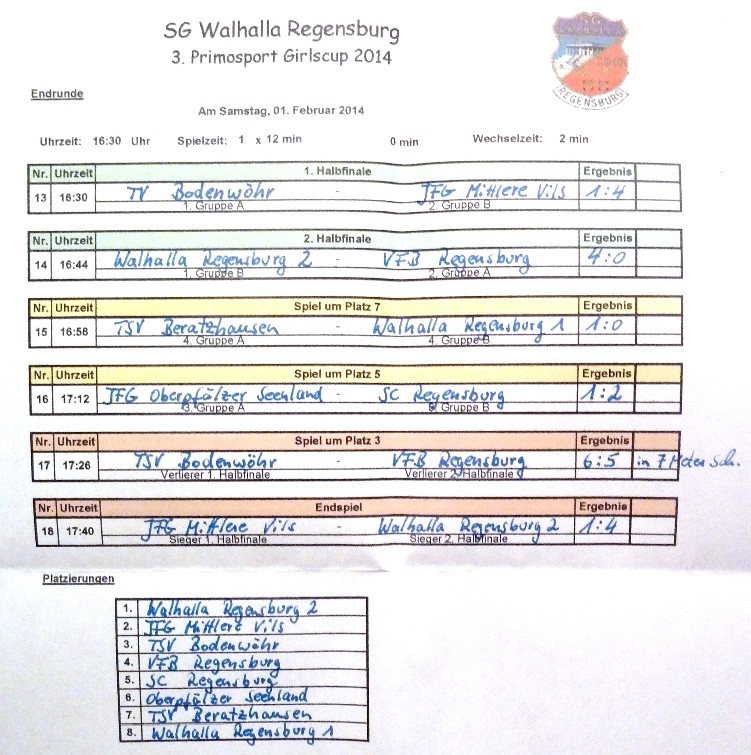 SG Walhalla Regensburg
3. Primosport Girlscup 2014
SG
REGENSBURG
Endrunde
Am Samstag, 01. Februar 2014
Uhrzeit: 16:30 Uhr Spielzeit: 1 x 12 min 0 min Wechselzeit: 2 min
Nr. Uhrzeit 1. Halbfinale Ergebnis
13 16:30 TV Bodenwöhr - JFG Mittlere Vils 1:4
1. Gruppe A 2. Gruppe B
Nr. Uhrzeit 2. Halbfinale Ergebnis
14 16:44 Walhalla Regensburg 2 - VFB Regensburg 4:0
1. Gruppe B 2. Gruppe A
Nr. Uhrzeit Spiel um Platz 7 Ergebnis
15 16:58 TSV Beratzhausen - Walhalla Regensburg 1 1:0
4. Gruppe A 4. Gruppe B
Nr. Uhrzeit Spiel um Platz 5 Ergebnis
16 17:12 JFG Oberpfälzer Seenland - SC Regensburg 1:2
3. Gruppe A 3. Gruppe B
Nr. Uhrzeit Spiel um Platz 3 Ergebnis
17 17:26 TSV Bodenwöhr - VFB Regensburg 6:5 in 7 Meter Sch.
Verlierer 1. Halbfinale Verlierer 2. Halbfinale
Nr. Uhrzeit Endspiel Ergebnis
18 17:40 JFG Mittlere Vils - Walhalla Regensburg 2 1:4
Sieger 1. Halbfinale Sieger 2. Halbfinale
Platzierungen
1. Walhalla Regensburg 2
2. JFG Mittlere Vils
3. TSV Bodenwöhr
4. VFB Regensburg
5. SC Regensburg
6. Oberpfälzer Seenland
7. TSV Beratzhausen
8. Walhalla Regensburg 1